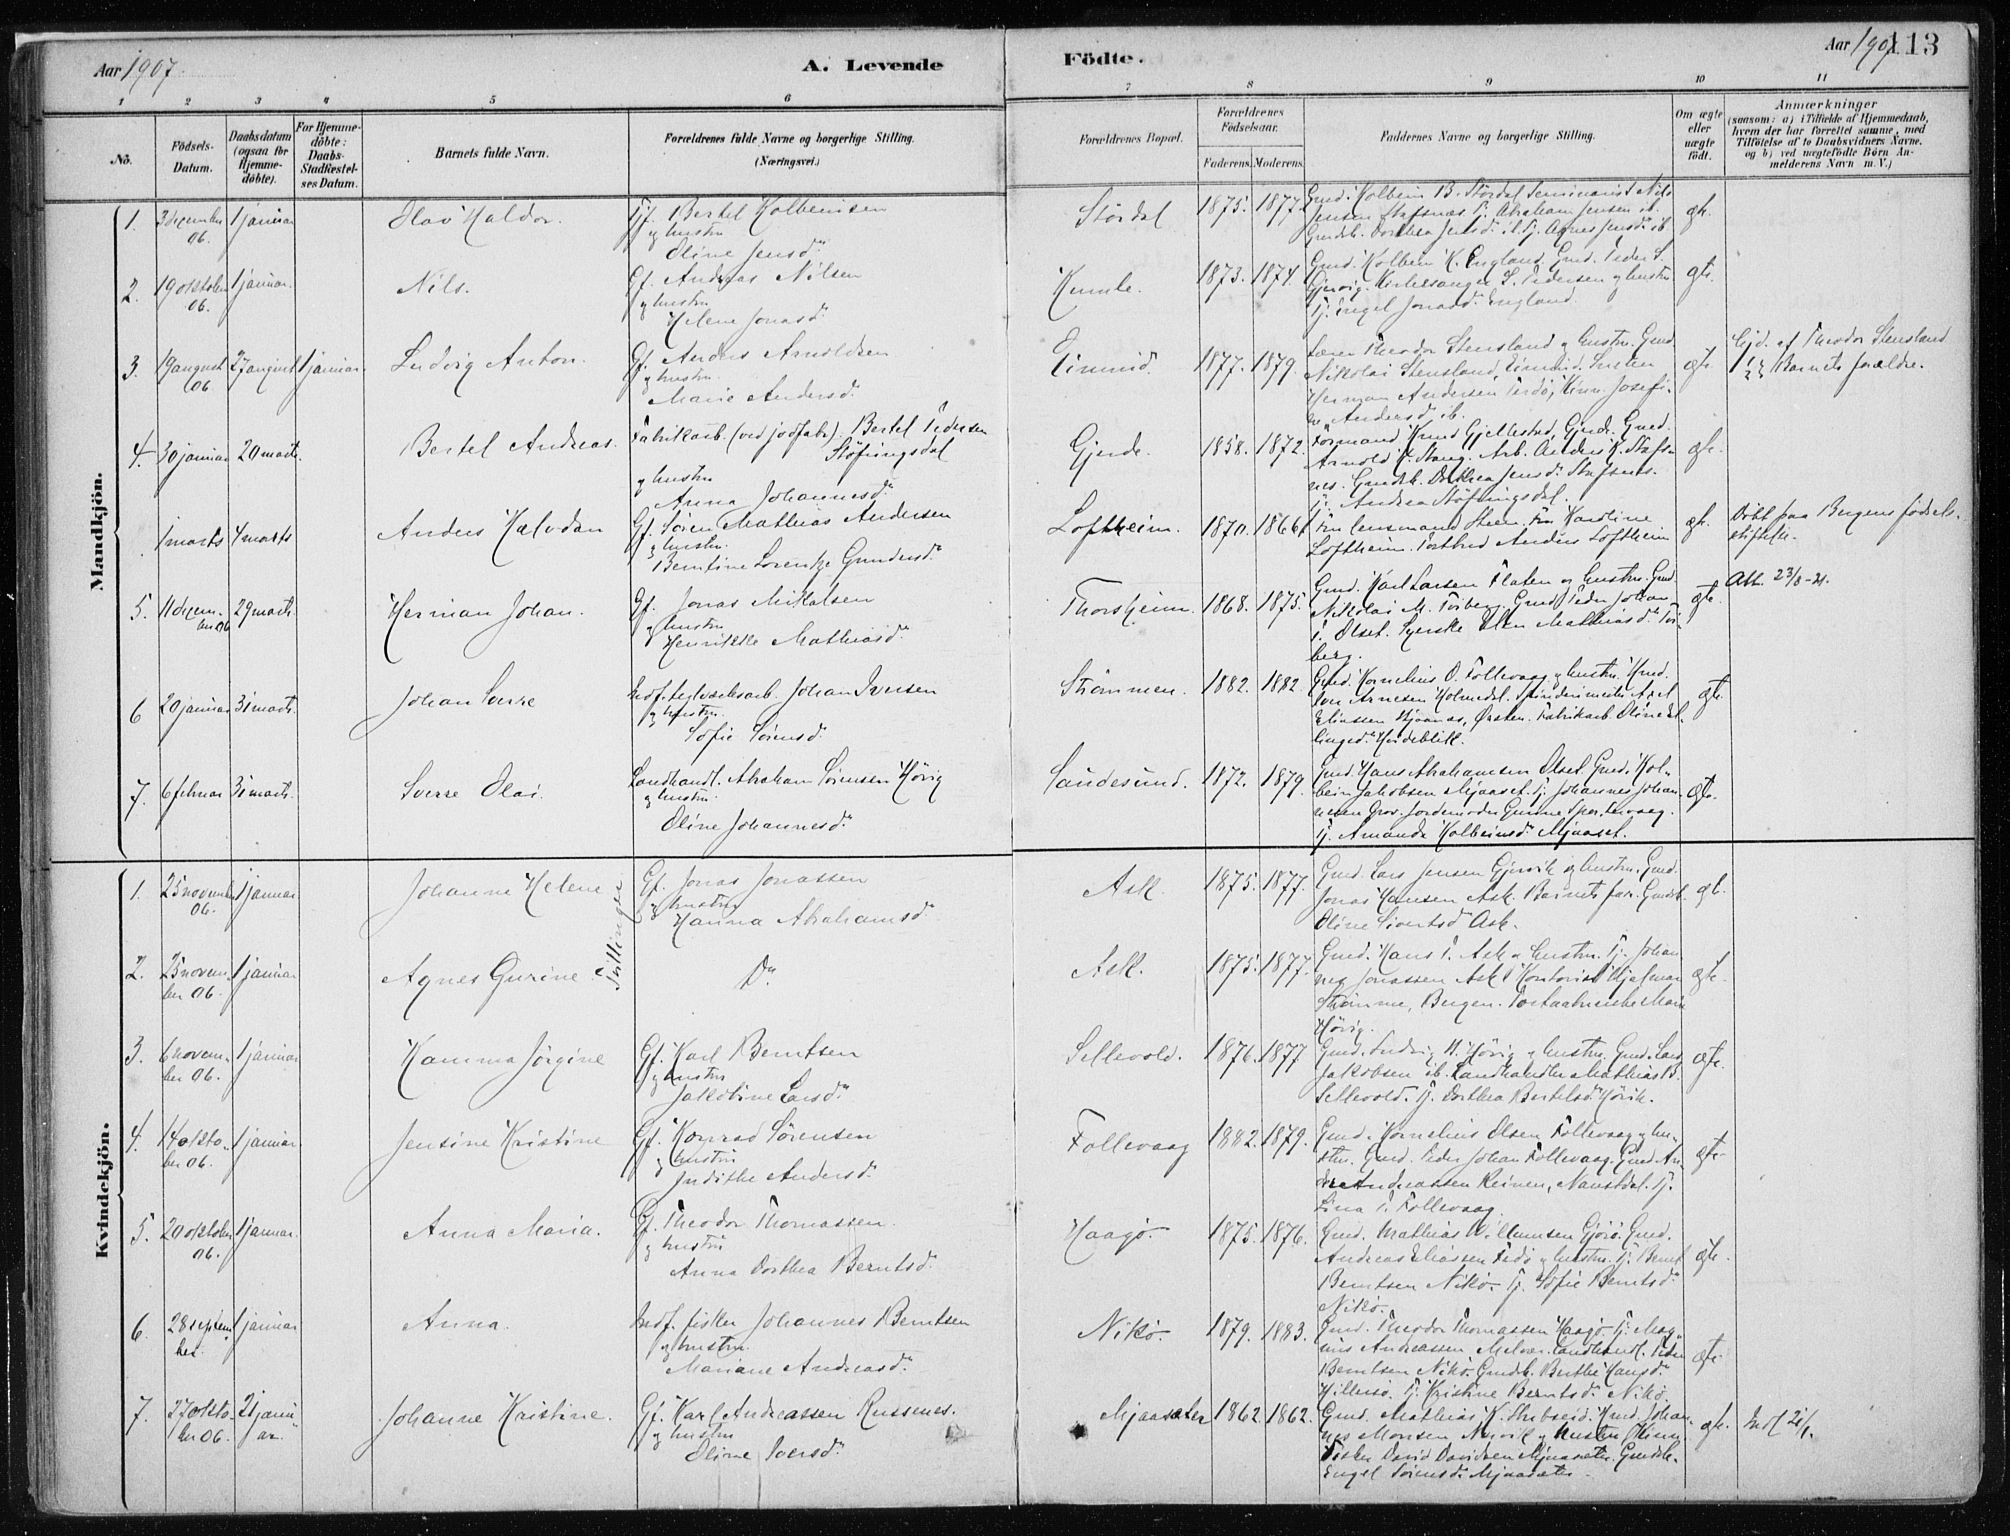 Aar 1907.
A. Levende
Födte.
Aar 1907
113
1 2 3 4 5 6 7 8 9 10 11
No.
Födsels-Datum.
Daabsdatum (ogsaa för Hjemme-döbte).
For Hjemme-döbte: Daabs-Stadfæstel-ses Datum.
Barnets fulde Navn.
Forældrenes fulde Navne og borgerlige Stilling. (Næringsvei.)
Forældrenes Bopæl.
Forældrenes Födselsaar.
Faderens. Moderens.
Faddernes Navne og borgerlige Stilling.
Om ægte eller uægte födt.
Anmærkninger (saasom: a) i Tilfælde af Hjemmedaab, hvem der har forrettet samme, med Tilföielse af to Daabsvidners Navne, og b) ved uægtefödte Börn An-melderens Navn m. V.)
Mandkjön.
1. 3 december 06. 1 januar Olav Haldor. Gf. Bertel Kolbeinsen og hustru Oline Jensd. Stördal 1875. 1877. Gmd. Kolbein B. Stördal Seminarist Nils Jensen Stafsnæs. Tj. Abraham Jensen ib. Gmdk. Dorthea Jensd. ib. Tj. Agnes Jensd. ib. gte.
2. 19 oktober 06. 1 januar. Nils. Gf. Andreas Nilsen og hustru Helene Jonasd. 1873. 1874. Gmd. Kolbein K. England. Gmd. Peder S. Gjervig. Kirkesanger S. Pedersen og hustru Tj. Engel Jonasd. England. gte.
3. 19 august 06. 27 august 1 januar. Ludvig Anton. Gf. Anders Arnoldsen og hustru. Marie Andersd. 1877. 1879. Lærer Theodor Stensland og hustru. Gmd. Nikolai Stensland, Herman Andersen Josefine Andersd. ib. gte. Hjd. af Theodor Stensland Barnets forældre.
4. 30 januar 20 marts. Bertel Andreas. Fabrikarb. (ved jodfabr.) Bertel Pedersen Stöfringsdal og hustru Anna Johannesd. Gjerde. 1858. 1872. Formand Knud Gjellestad, Gjerde. Gmd. Arnold K. Stang. Arb. Anders K. Stafsnes. Gmdk. Dorthea Jensd. Stafsnes. Tj. Andrea Stöfringsdal. gte.
1 marts 4 marts Anders Halvdan Gf. Sören Mathias Andersen og hustru. Berntine Lorentze Gundersd. Loftheim. 1870. 1866. Fru lensmand Steen. Fru Karoline Loftheim. Postbud Anders Loftheim gte. Döbt paa Bergens födselsstiftelse.
5. 11 december 06 29 marts. Herman Johan. Gf. Jonas Mikalsen og hustru Henrikke Mathiasd. Thorsheim. 1868. 1875. Gmd. Karl Larsen Flaten og hustru. Gmd. Nikolai M. Torberg Gmd. Peder Johan P. Olset. Syerske Ellen Mathiasd. Torberg. gte. Att. 23/8-21.
6 20 januar 31 marts. Johan Sverre Indf. teglværksarb. Johan Iversen og hustru. Sofie Sörensd. Strömmen. 1882. 1882. Gmd. Kornelius O. Follevaag og hustru. Gmd. Arnesen Holmedal. Spinderimester Axel Eliassen Fabrikarb. gte.
7. 6 februar 31 marts. Sverre Olai. Landhandl. Abraham Sörensen Hörig og hustru. Oline Johannesd. Sandesund. 1872. 1879. Gmd. Hans Abrahamsen Olset. Gmd. Kolbein Jakobsen Mjaaset. Tj. Johannes Johannesen Grov. Jordemoder Tj. Amanda Kolbeinsd. Mjaaset. gte.
Kvindekjön.
1. 25 november 06. 1 januar. Johanne Helene Gf. Jonas Jonassen og hustru Hanna Abrahamsd. Ask. 1875. 1877. Gmd. Lars Jensen Gjervik og hustru. Gmd. Jonas Hansen Ask. Barnets far. Gmdk. Oline Sivertsd. Ask. gte.
Tvillinger
2. 25 november 06. 1 januar Agnes Gurine. Do. Ask. 1875. 1877. Gmd. Hans P. Ask og hustru. Tj. Johannes Jonassen Ask. Kontorist Hjelmar Strömme, Bergen. Hörig. gte.
3. 6 november 06. 1 januar Hamma Jörgine Gf. Karl Berntsen og hustru Jakobine Larsd. Sellevold. 1876. 1877 Gmd. Ludvig Hörig og hustru. Gmd. Lars Jakobsen ib. Landhandler Mathias B. Sellevold. Tj. Dorthea Bertelsd. Hörik. gte.
4. 14 oktober 06. 1 januar Jensine Kristine Gf. Konrad Sörensen og hustru Judithe Andersd. Follevaag 1882. 1879. Gmd. Kornelius Olsen Follevaag og hustru. Gmd. Peder Johan Follevaag. Gmd. Andreassen Reinen, Naustdal. Tj. Lina P. Follevaag. gte
5. 20 oktober 06. 1 januar. Anna Maria. Gf. Theodor Thomassen. og hustru Anna Dorthea Berntsd. Haagö. 1875. 1876. Gmd. Mathias Willumsen Gjörö. Gmd. Andreas Eliassen og hustru. Tj. Bernt Berntsen Nikö. Tj. Sofie Berntsd. Nikö. gte.
6. 28 september. 1 januar Anna. Indf. fisker Johannes Berntsen og hustru. Mariane Andreasd. Nikö. 1879. 1883. Gmd. Theodor Thomassen Haagö. Tj. Magnus Andreassen Melvær. Landhandl. Peder Berntsen Nikö. Gmdk. Berthe Hansd. Hillersö. Tj. Kristine Berntsd. Nikö. gte.
7. 27 oktober 06. 21 januar. Johanne Kristine. Gf. Karl Andreassen Russenes. og hustru Oline Iversd. Mjaasæter 1862. 1862. Gmd. Mathias K. Gmd. Johannes Monsen og hustru Fisker David Davidsen Mjaasæter. Gmdk. Engel Sörensd. Mjaasæter. gte. Indf. 21/1.